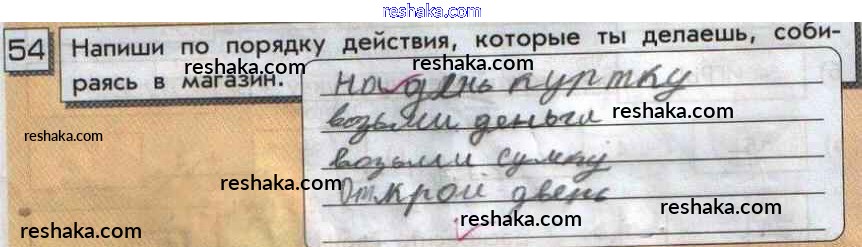 reshaka.com
54 Напиши по порядку действия, которые ты делаешь, соби-
reshaka.com reshaka.com
раясь в магазин.
надень куртку
reshaka.com
возьми деньги
reshaka.com reshaka.com
возьми сумку
reshaka.com
Открой двень
reshaka.com
reshaka.com